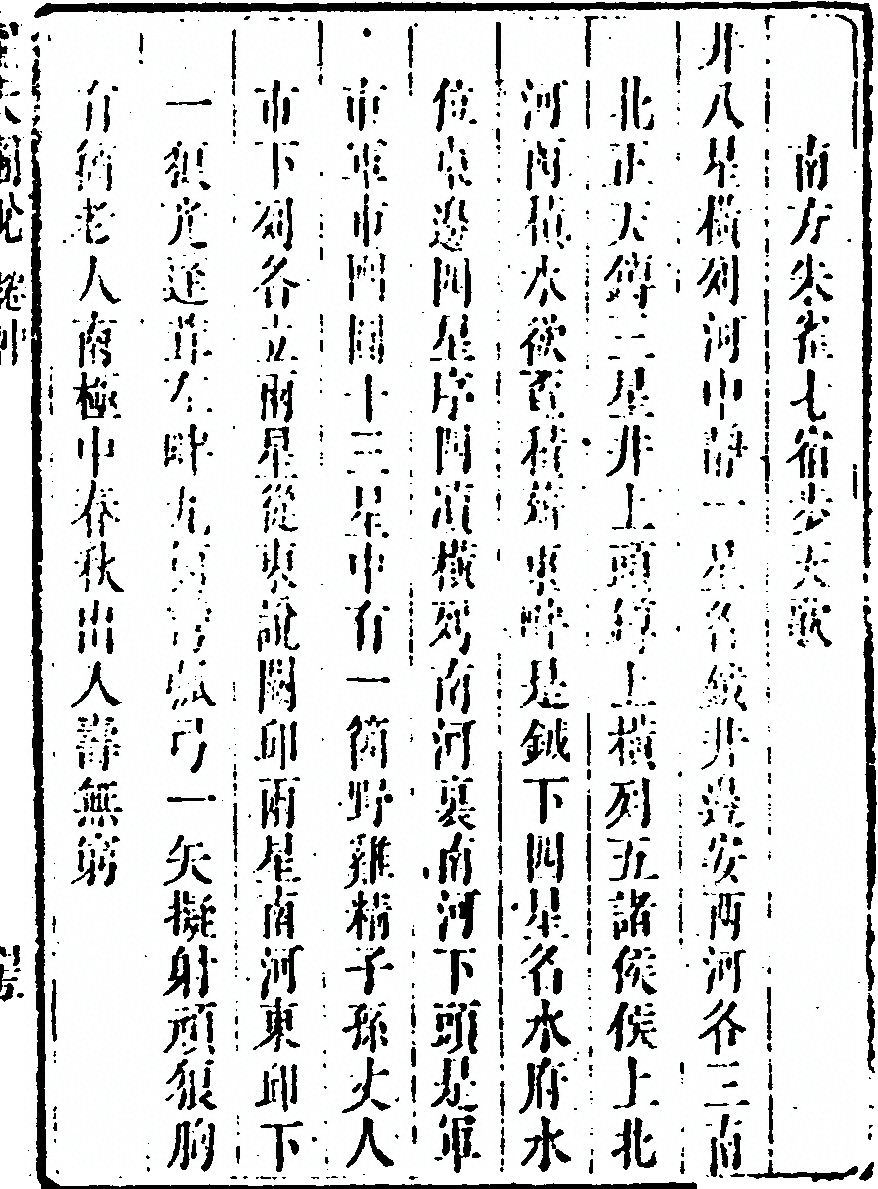 南方朱雀七宿步天歌
井八星橫列河中靜一星名鉞井邊安兩河各三南
北正天鐏三星井上頭鐏上橫列五諸侯侯上北
河西積水欲覓積薪東畔是鉞下四星名水府水
位東邊四星序四瀆橫列南河裏南河下頭是軍
市軍市團圓十三星中有一箇野雞精子孫丈人
市下列各立兩星從東說闕邱兩星南河東邱下
一狼光蓬茸左畔九箇彎弧弓一矢擬射頑狼胸
有箇老人南極中春秋出入壽無窮